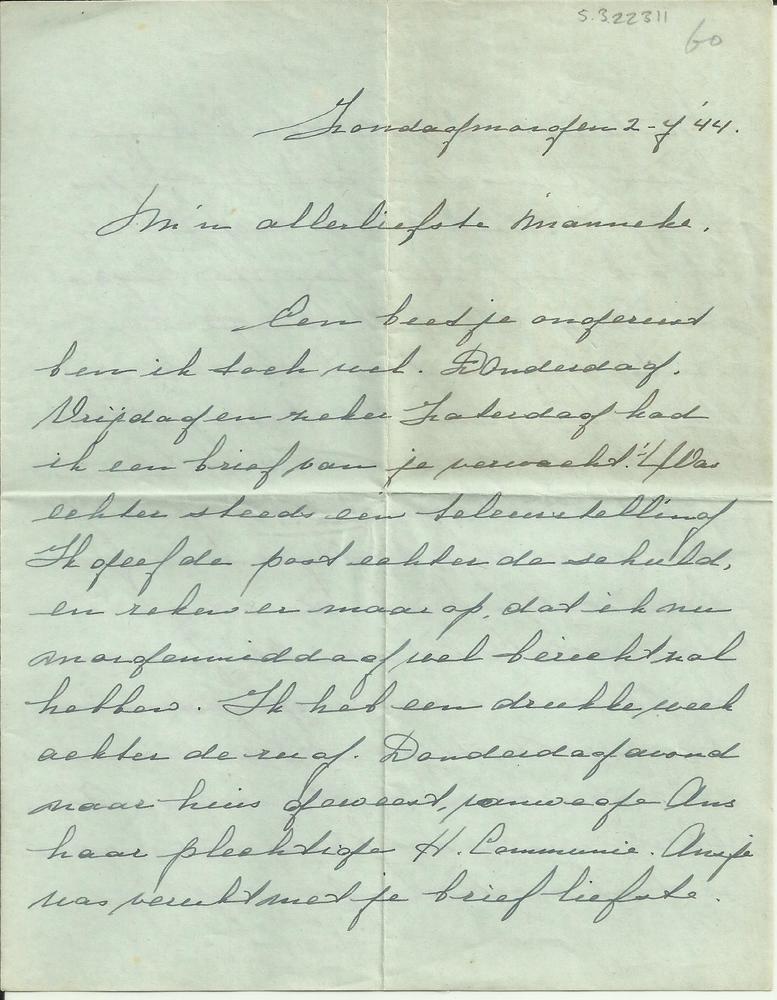 S.3.22311
60
Zondagmorgen 2-7'44.
M'n allerliefste Manneke.
Een beetje ongerust
ben ik toch wel. Donderdag,
Vrijdag en zeker Zaterdag had
ik een brief van je verwacht. 't Was
echter steeds een teleurstelling
Ik geef de post echter de schuld,
en reken er maar op, dat ik nu
morgenmiddag wel bericht zal
hebben. Ik heb een drukke week
achter de rug. Donderdagavond
naar huis geweest, vanwege Ans
haar plechtige H. Communie. Ansje
was verrukt met je brief liefste.